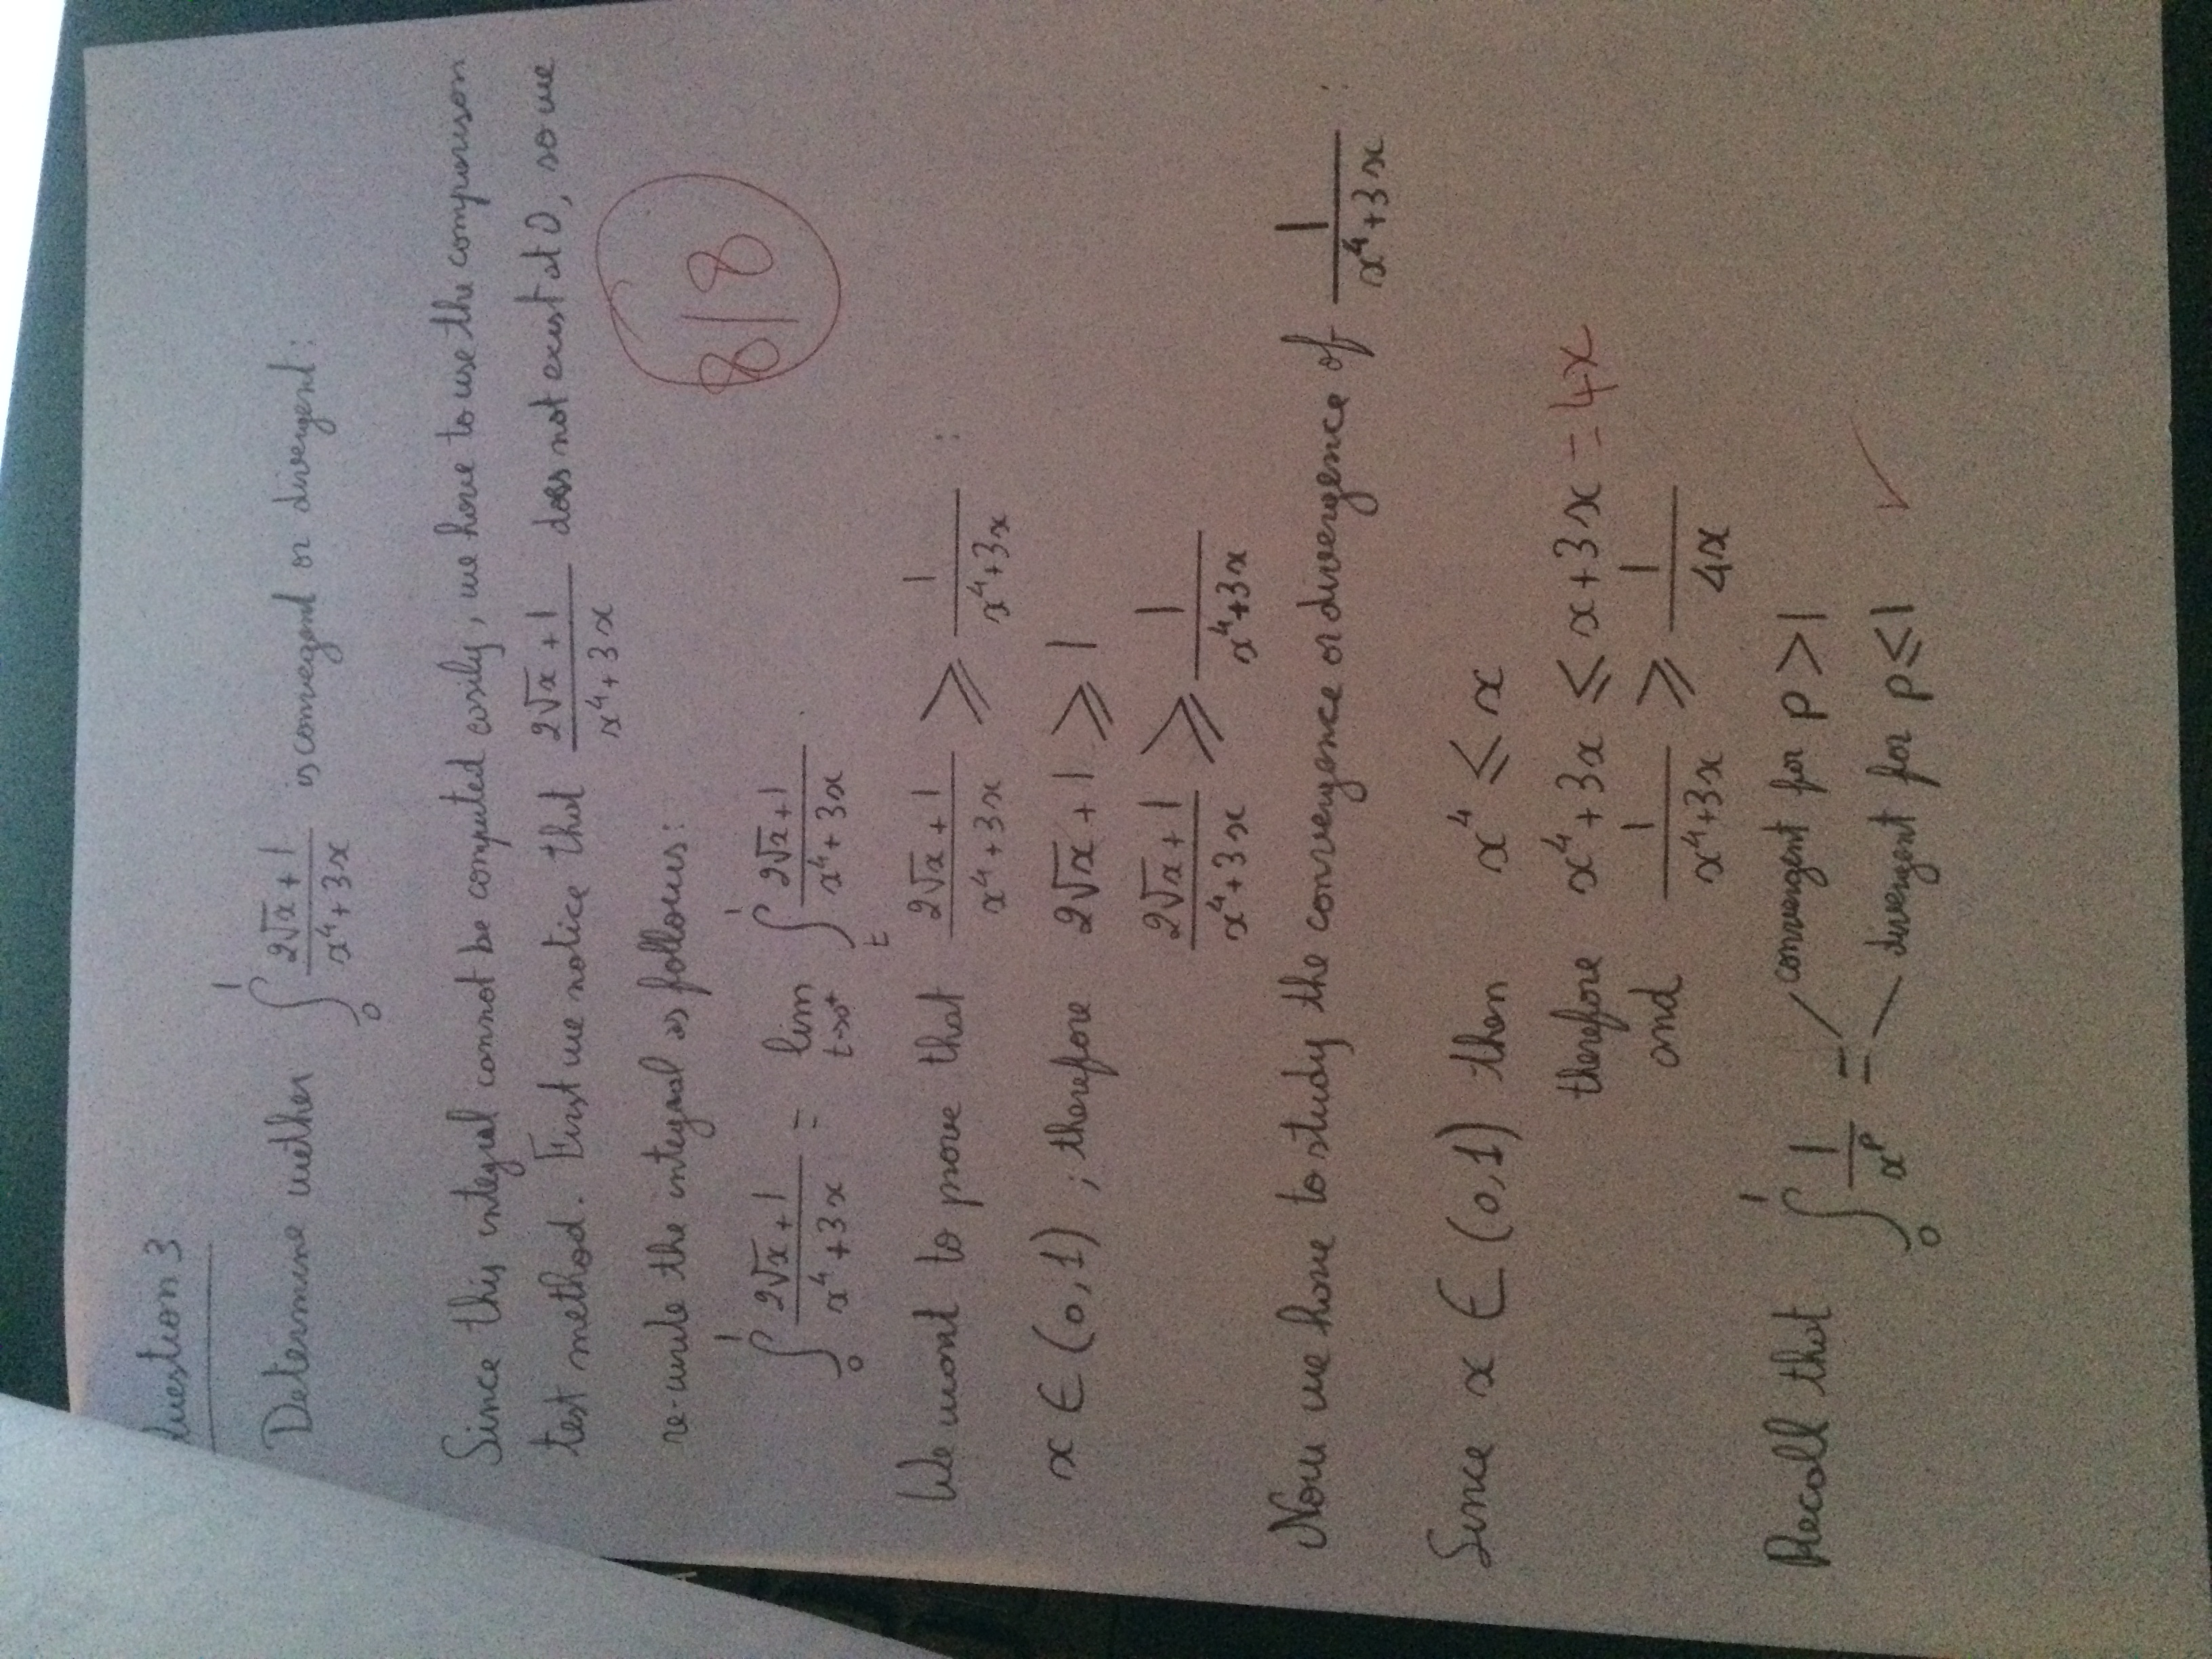 Question 3
Determine wether ∫₀¹ (2√x + 1)/(x⁴ + 3x) is convergend or divergent:
Since this integral cannot be computed easily, we have to use the comparison
test method. First we notice that (2√x + 1)/(x⁴ + 3x) does not exist at 0, so we
re-write the integral as follows:
8/8
∫₀¹ (2√x + 1)/(x⁴ + 3x) = lim t→0⁺ ∫ₜ¹ (2√x + 1)/(x⁴ + 3x)
We want to prove that (2√x + 1)/(x⁴ + 3x) ⩾ 1/(x⁴ + 3x) :
x ∈ (0,1) ; therefore 2√x + 1 ⩾ 1
(2√x + 1)/(x⁴ + 3x) ⩾ 1/(x⁴ + 3x)
Now we have to study the convergence or divergence of 1/(x⁴ + 3x) :
Since x ∈ (0,1) then x⁴ ⩽ x
therefore x⁴ + 3x ⩽ x + 3x = 4x
and 1/(x⁴ + 3x) ⩾ 1/4x
Recall that ∫₀¹ 1/xᵖ = convergent for p > 1
divergent for p ⩽ 1 ✓